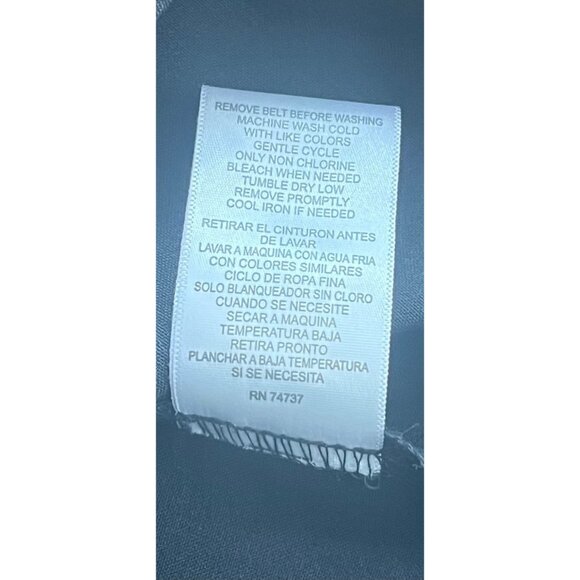 REMOVE BELT BEFORE WASHING
MACHINE WASH COLD
WITH LIKE COLORS
GENTLE CYCLE
ONLY NON CHLORINE
BLEACH WHEN NEEDED
TUMBLE DRY LOW
REMOVE PROMPTLY
COOL IRON IF NEEDED
RETIRAR EL CINTURON ANTES
DE LAVAR
LAVAR A MAQUINA CON AGUA FRIA
CON COLORES SIMILARES
CICLO DE ROPA FINA
SOLO BLANQUEADOR SIN CLORO
CUANDO SE NECESITE
SECAR A MAQUINA
TEMPERATURA BAJA
RETIRA PRONTO
PLANCHAR A BAJA TEMPERATURA
SI SE NECESITA
RN 74737